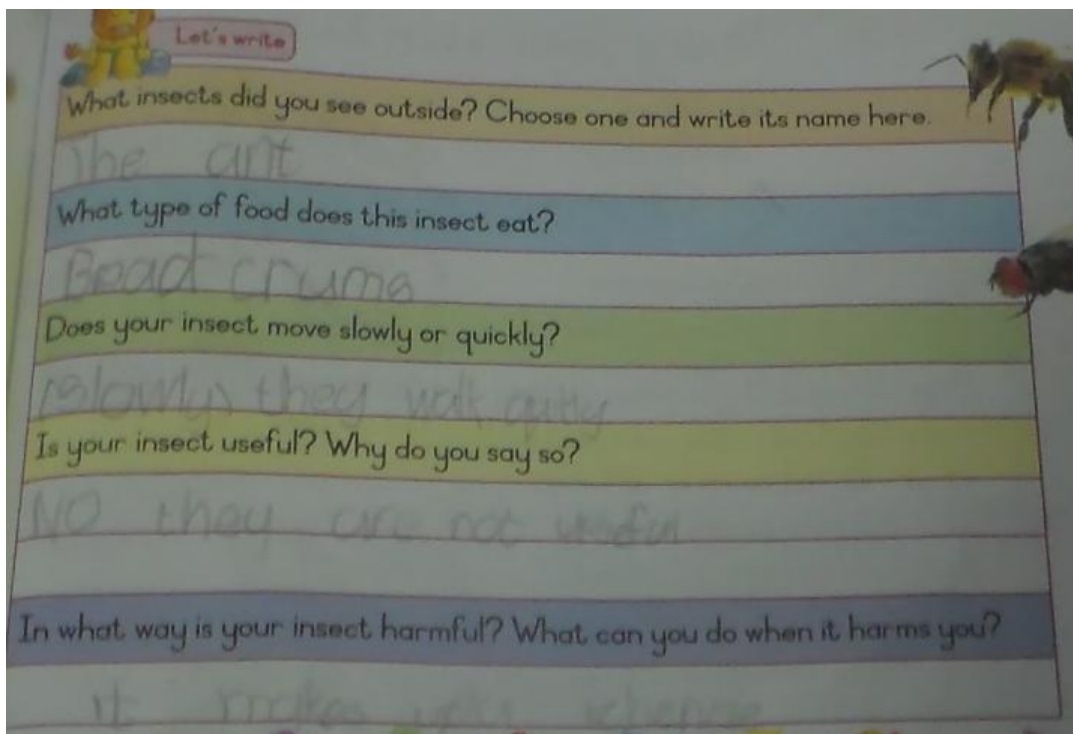 Let's write
What insects did you see outside? Choose one and write its name here.
The ant
What type of food does this insect eat?
Bead crums
Does your insect move slowly or quickly?
(Slowly) they walk
Is your insect useful? Why do you say so?
NO they are not useful
In what way is your insect harmful? What can you do when it harms you?
it makes you